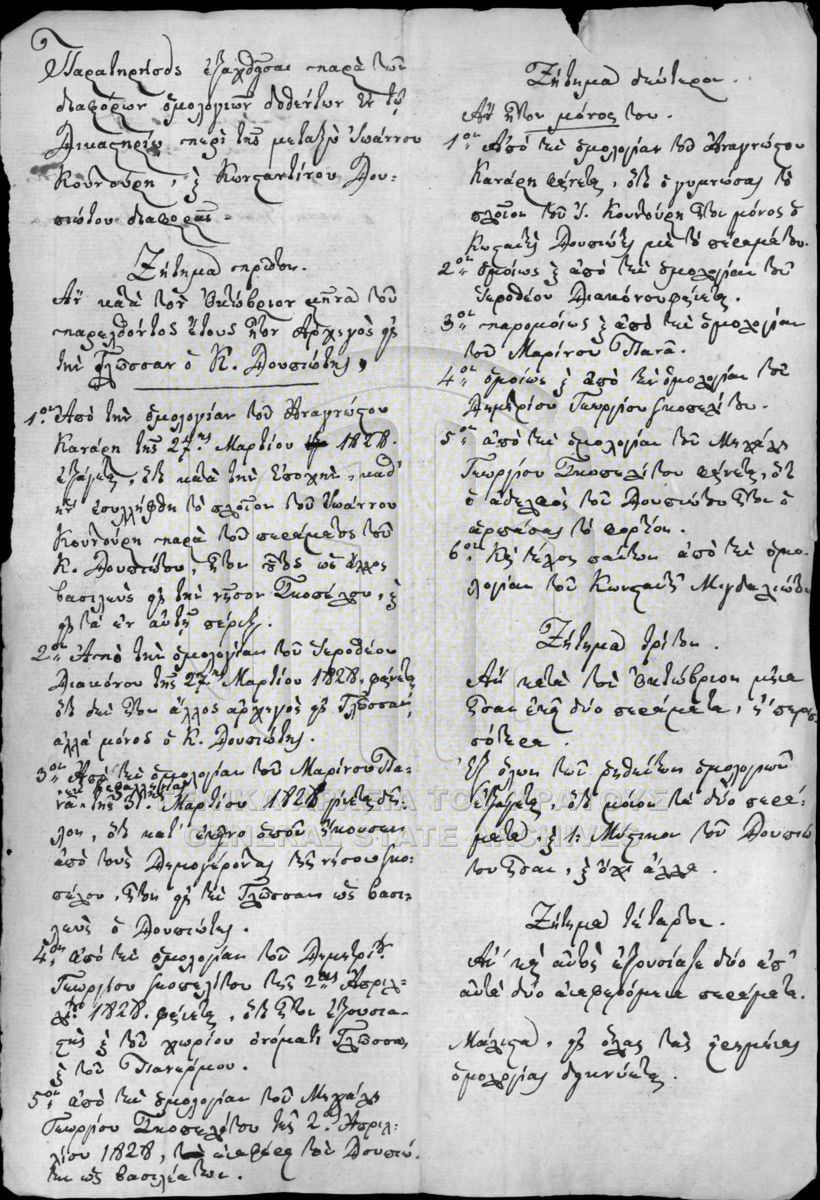 Παρατηρήσεις ἐξαχθεῖσαι παρὰ τῶν
διαφόρων ὁμολογιῶν δοθέντων ἐν τῷ
Δικαστηρίῳ περὶ τῆς μεταξὺ Ἰωάννου
Κουντούρη, ὲ Κωνσταντίνου Δου-
πιώτου διαφορᾶς.
Ζήτημα πρῶτον.
Ἂν κατὰ τὸν Ὀκτώβριον μῆνα τοῦ
παρελθόντος ἔτους ἦτον ἀρχηγὸς εἰς
τὴν Γλῶσσαν ὁ Κ. Δουπιώτης,
1ον Ἀπὸ τὴν ὁμολογίαν τοῦ Ἀναγνώστου
Κανάρη τῆς 27ης Μαρτίου 1828.
ἐξάγεται, ὅτι κατὰ τὴν ἐποχὴν, καθ'
ἣν ἐσυλλήφθη τὸ πλοῖον τοῦ Ἰωάννου
Κουντούρη παρὰ τοῦ περάματος τοῦ
Κ. Δουπιώτου, ἦτον οὗτος ὡς ἄλλος
βασιλεὺς εἰς τὴν νῆσον Σκοπέλου, ὲ
εἰς τὰ ἐν αὐτῇ πέριξ.
2ον Ἀπὸ τὴν ὁμολογίαν τοῦ Ἱεροθέου
Διακόνου τῆς 27ης Μαρτίου 1828. φαίνεται
ὅτι δὲν ἦτον ἄλλος ἀρχηγὸς εἰς Γλῶσσαν,
ἀλλὰ μόνος ὁ Κ. Δουπιώτης.
3ον Ἀπὸ τὴν ὁμολογίαν τοῦ Μαρίνου Πα-
νᾶ τῆς 31 Μαρτίου 1828 γίνεται δῆ-
λον, ὅτι κατ' ἐκεῖνο ὁποῦ ἤκουσεν
ἀπὸ τοὺς Δημογέροντας τῆς νήσου Σκο-
πέλου, ἦτον εἰς τὴν Γλῶσσαν ὡς βασι-
λεὺς ὁ Δουπιώτης.
4ον ἀπὸ τὴν ὁμολογίαν τοῦ Δημητρίου
Γεωργίου Σκοπελίτου τῆς 2ας Ἀπριλ-
λίου 1828. φαίνεται, ὅτι ἦτον ἐξουσια-
στὴς ὲ τοῦ χωρίου ὀνόματι Γλῶσσα,
ὲ τοῦ Πανέρμου.
5ον ἀπὸ τὴν ὁμολογίαν τοῦ Μιχάλη
Γεωργίου Σκοπελίτου τῆς 2ας Ἀπριλ-
λίου 1828, ἀναφέρει τὸν Δουπιώ-
την ὡς βασιλέα των.
Ζήτημα δεύτερον.
Ἂν ἦτον μόνος του.
1ον Ἀπὸ τὴν ὁμολογίαν τοῦ Ἀναγνώστου
Κανάρη φαίνεται, ὅτι ὁ γυμνώσας τὸ
πλοῖον τοῦ Ἰ. Κουντούρη ἦτον μόνος ὁ
Κωσταντὴς Δουπιώτης μὲ τὸ πέραμά του.
2ον ὁμοίως ὲ ἀπὸ τὴν ὁμολογίαν τοῦ
Ἱεροθέου Διακόνου φαίνεται.
3ον παρομοίως ὲ ἀπὸ τὴν ὁμολογίαν
τοῦ Μαρίνου Πανᾶ.
4ον ὁμοίως ὲ ἀπὸ τὴν ὁμολογίαν τοῦ
Δημητρίου Γεωργίου Σκοπελίτου.
5ον ἀπὸ τὴν ὁμολογίαν τοῦ Μιχάλη
Γεωργίου Σκοπελίτου φαίνεται, ὅτι
ὁ ἀδελφὸς τοῦ Δουπιώτου ἦτον ὁ
ἁρπάσας τὸ φορτίον.
6ον Καὶ τέλος πάντων ἀπὸ τὴν ὁμο-
λογίαν τοῦ Κωνσταντῆ Μιγδαλιώτη
Ζήτημα τρίτον.
Ἂν κατὰ τὸν Ὀκτώβριον μῆνα
ἦσαν ἐκεῖ δύο περάματα, ἢ περισ-
σότερα.
Ἐξ ὅλων τῶν ῥηθεισῶν ὁμολογιῶν
ἐξάγεται, ὅτι μόνον τὰ δύο περά-
ματα, ὲ 1: Μύστικον τοῦ Δουπιώ-
του ἦσαν, ὲ ὄχι ἄλλα.
Ζήτημα τέταρτον.
Ἂν καὶ αὐτὸς ἐξουσίαζε δύο ἀπ'
αὐτὰ δύο ἀναφερόμενα περάματα.
Μάλιστα, εἰς ὅλας τὰς εἰρημένας
ὁμολογίας δεικνύεται.
ΓΕΝΙΚΑ ΑΡΧΕΙΑ ΤΟΥ ΚΡΑΤΟΥΣ
GENERAL STATE ARCHIVES